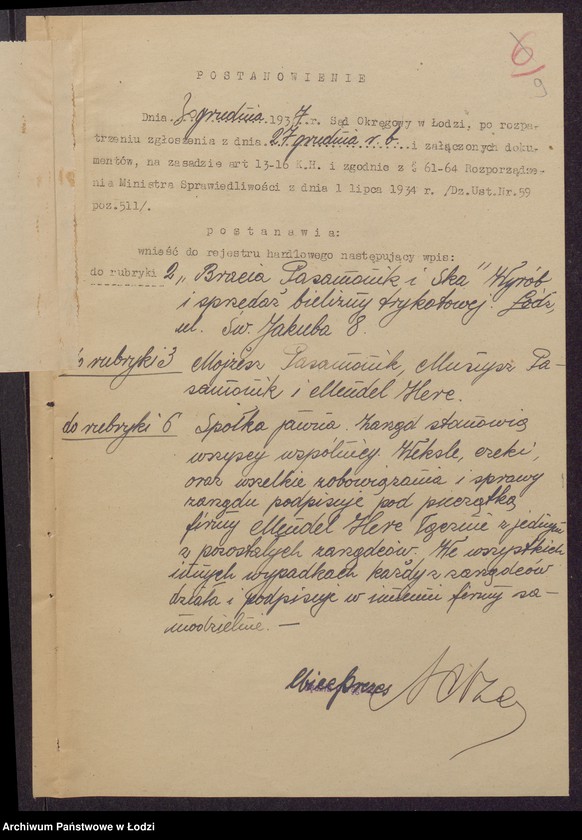 6
9
POSTANOWIENIE
Dnia grudnia 1937 r. Sąd Okręgowy w Łodzi, po rozpa-
trzeniu zgłoszenia z dnia 27 grudnia r. b. i załączonych doku-
mentów, na zasadzie art 13-16 K.H. i zgodnie z § 61-64 Rozporządze-
nia Ministra Sprawiedliwości z dnia 1 lipca 1934 r. /Dz.Ust.Nr.59
poz.511/.
postanawia:
wnieść do rejestru handlowego następujący wpis:
do rubryki 2 „Bracia Pasamonik i Ska" Wyrób
i sprzedaż bielizny trykotowej. Łódź,
ul. Św. Jakuba 8.
do rubryki 3 Mojżesz Pasamonik, Muszysz Pa-
samonik i Mendel Herc.
do rubryki 6 Spółka jawna. Zarząd stanowią
wszyscy wspólnicy. Weksle, czeki,
oraz wszelkie zobowiązania i sprawy
zarządu podpisuje pod pieczątką
firmy Mendel Herc łącznie z jednym
z pozostałych zarządców. We wszystkich
innych wypadkach każdy z zarządców
działa i podpisuje w imieniu firmy sa-
modzielnie. —
Wiceprezes
Archiwum Państwowe w Łodzi